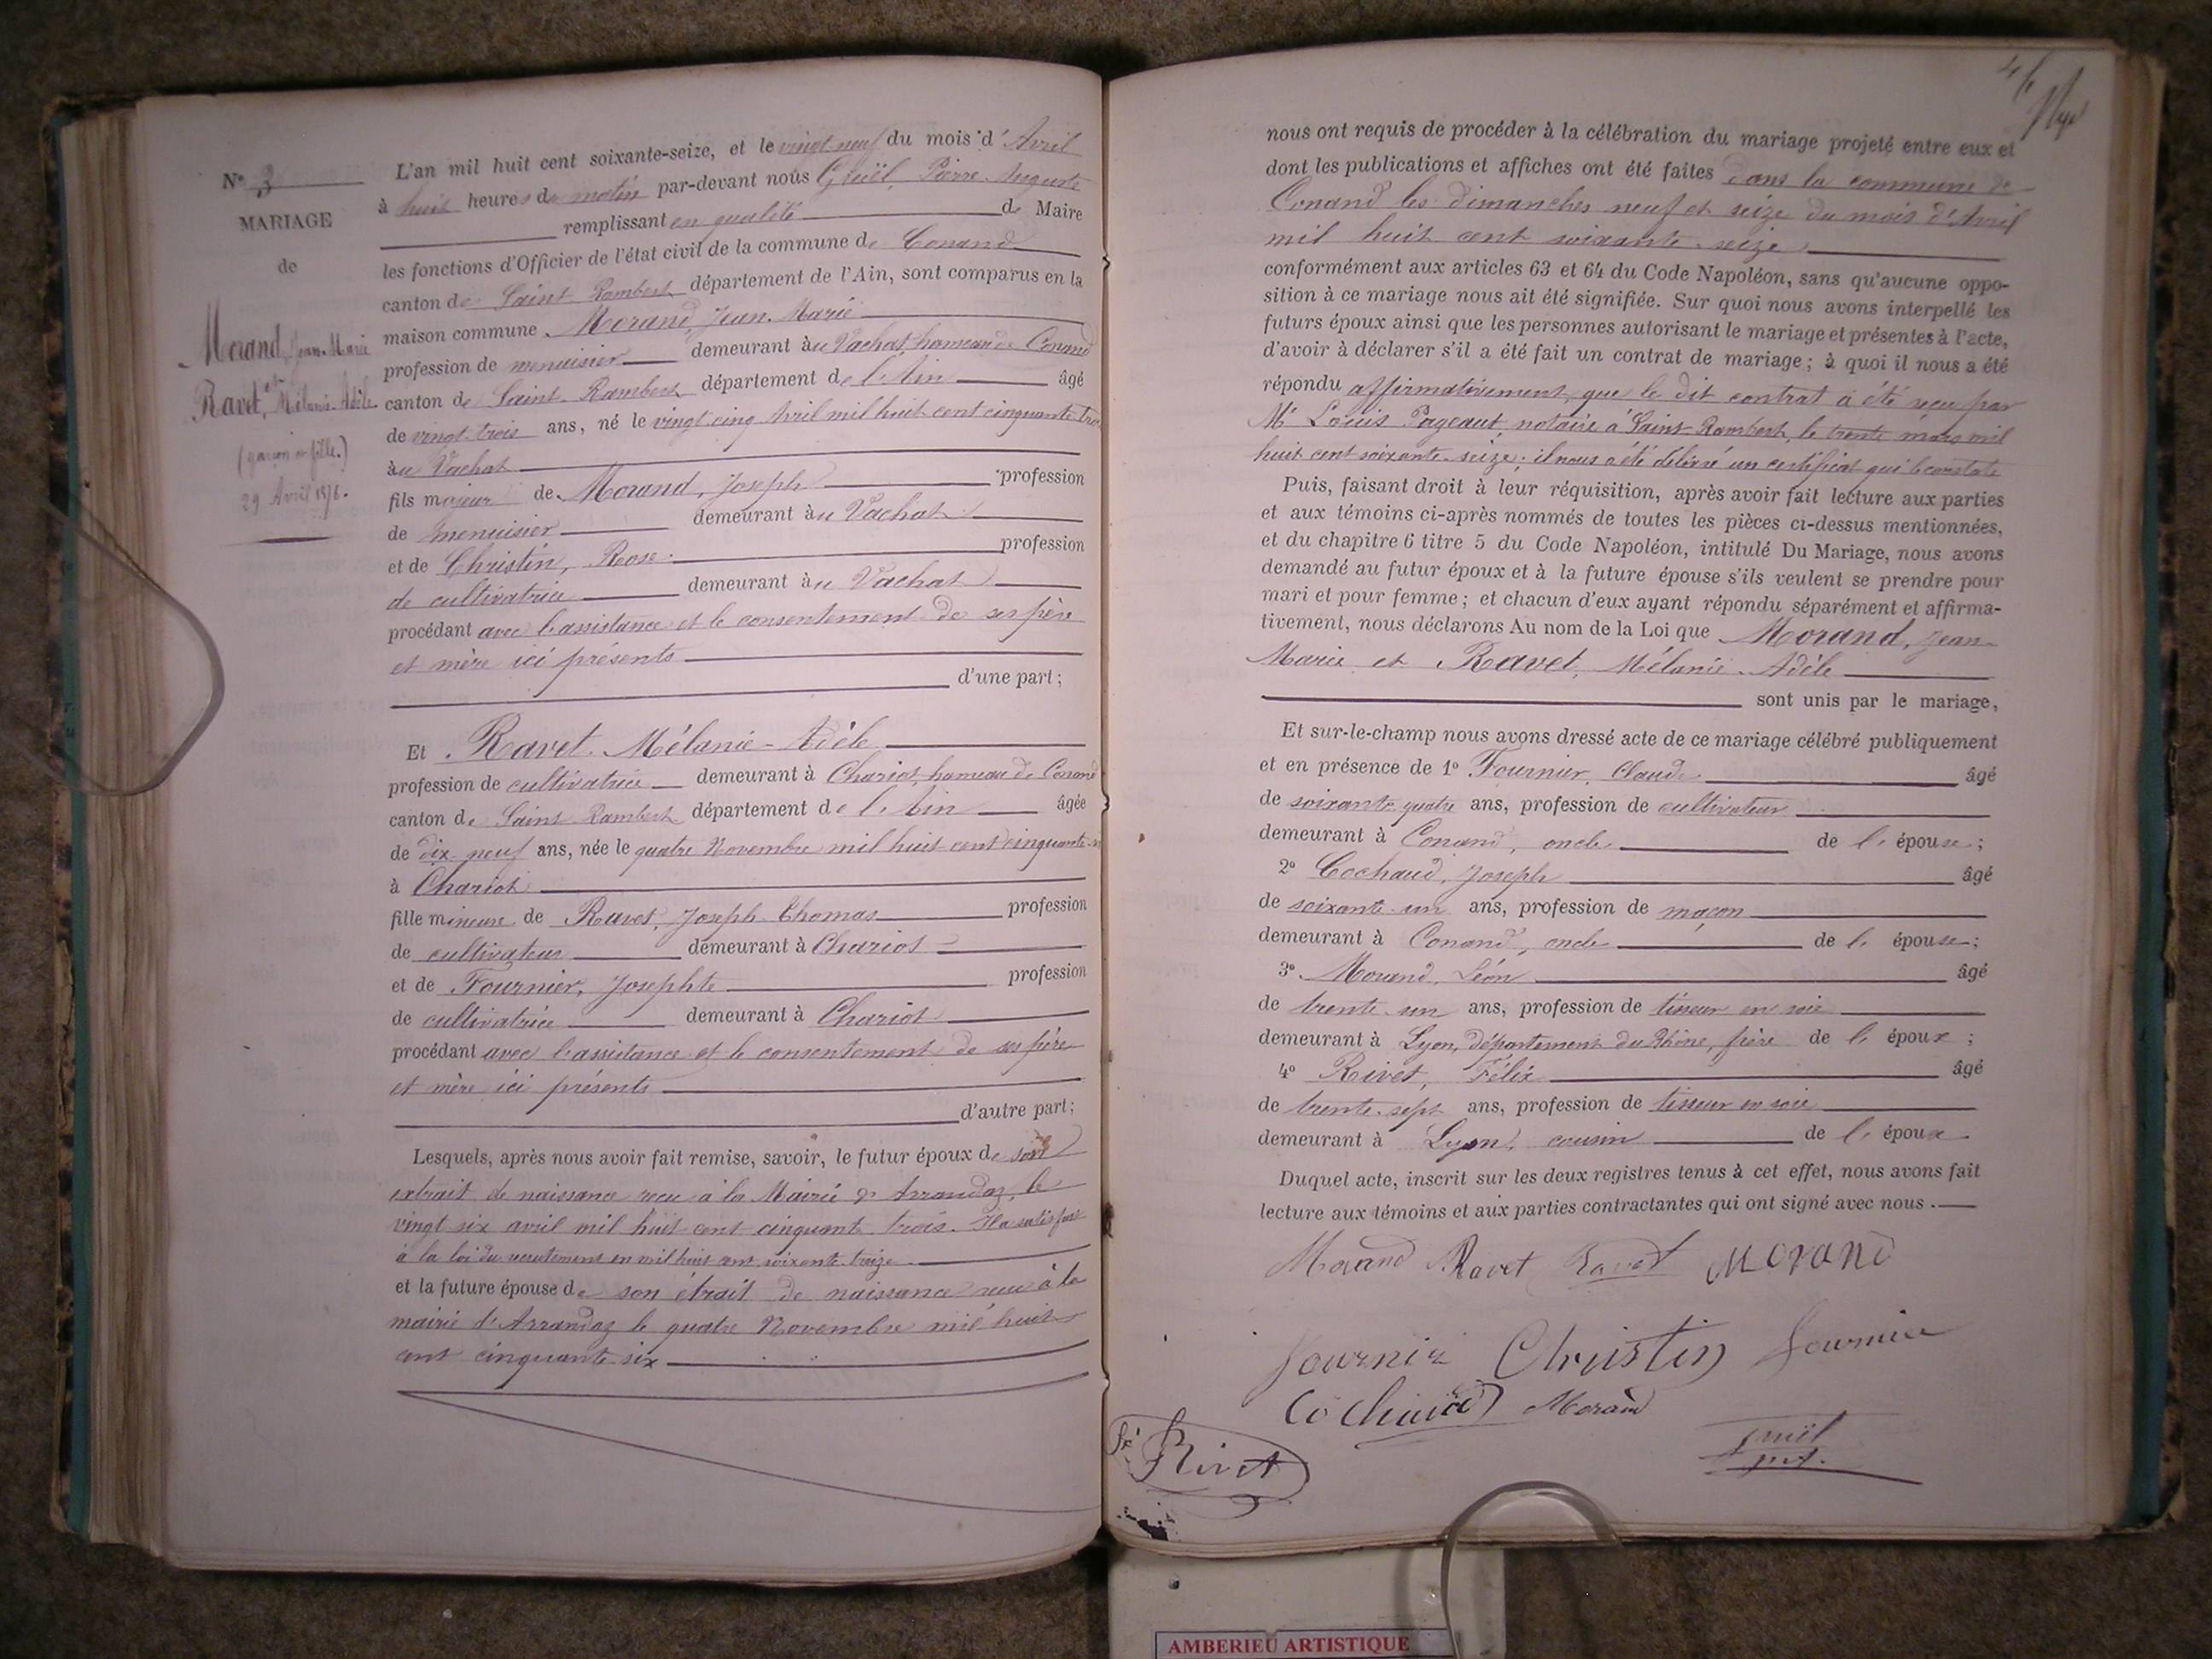 N° 3
MARIAGE
de
Morand, Jean-Marie
et
Ravet, Mélanie-Adèle
(garçon et fille.)
29 Avril 1876.
L'an mil huit cent soixante-seize, et le vingt-neuf du mois d'Avril
à huit heures du matin par-devant nous Gruël, Pierre-Auguste
remplissant en qualité de Maire
les fonctions d'Officier de l'état civil de la commune de Conand
canton de Saint-Rambert département de l'Ain, sont comparus en la
maison commune Morand, Jean-Marie
profession de menuisier demeurant au Vachat, hameau de Conand
canton de Saint-Rambert département de l'Ain âgé
de vingt-trois ans, né le vingt-cinq Avril mil huit cent cinquante-trois
au Vachat
fils majeur de Morand, Joseph profession
de menuisier demeurant au Vachat
et de Christin, Rose profession
de cultivatrice demeurant au Vachat
procédant avec l'assistance et le consentement de ses père
et mère ici présents
d'une part;
Et Ravet Mélanie-Adèle
profession de cultivatrice demeurant à Chariot, hameau de Conand
canton de Saint-Rambert département de l'Ain âgée
de dix-neuf ans, née le quatre Novembre mil huit cent cinquante-
à Chariot
fille mineure de Ravet, Joseph-Thomas profession
de cultivateur demeurant à Chariot
et de Fournier, Josephte profession
de cultivatrice demeurant à Chariot
procédant avec l'assistance et le consentement de ses père
et mère ici présents
d'autre part;
Lesquels, après nous avoir fait remise, savoir, le futur époux de son
extrait de naissance reçu à la Mairie d'Arrandaz, le
vingt-six avril mil huit cent cinquante-trois. Il a satisfait
à la loi du recrutement en mil huit cent soixante-treize
et la future épouse de son étrait de naissance reçu à la
mairie d'Arrandaz le quatre Novembre mil huit
cent cinquante-six
nous ont requis de procéder à la célébration du mariage projeté entre eux et
dont les publications et affiches ont été faites dans la commune de
Conand les dimanches neuf et seize du mois d'Avril
mil huit cent soixante-seize
conformément aux articles 63 et 64 du Code Napoléon, sans qu'aucune oppo-
sition à ce mariage nous ait été signifiée. Sur quoi nous avons interpellé les
futurs époux ainsi que les personnes autorisant le mariage et présentes à l'acte,
d'avoir à déclarer s'il a été fait un contrat de mariage; à quoi il nous a été
répondu affirmativement, que le dit contrat a été reçu par
Me Louis Pageaut, notaire à Saint-Rambert, le trente mars mil
huit cent soixante-seize; il nous a été délivré un certificat qui le constate
Puis, faisant droit à leur réquisition, après avoir fait lecture aux parties
et aux témoins ci-après nommés de toutes les pièces ci-dessus mentionnées,
et du chapitre 6 titre 5 du Code Napoléon, intitulé Du Mariage, nous avons
demandé au futur époux et à la future épouse s'ils veulent se prendre pour
mari et pour femme; et chacun d'eux ayant répondu séparément et affirma-
tivement, nous déclarons Au nom de la Loi que Morand, Jean-
Marie et Ravet, Mélanie-Adèle
sont unis par le mariage,
Et sur-le-champ nous avons dressé acte de ce mariage célébré publiquement
et en présence de 1° Fournier, Claude âgé
de soixante-quatre ans, profession de cultivateur
demeurant à Conand, oncle de l'épouse;
2° Cochaud, Joseph âgé
de soixante-un ans, profession de maçon
demeurant à Conand, oncle de l'épouse;
3° Morand, Léon âgé
de trente-un ans, profession de tisseur en soie
demeurant à Lyon, département du Rhône, frère de l'époux;
4° Rivet, Félix âgé
de trente-sept ans, profession de tisseur en soie
demeurant à Lyon, cousin de l'époux
Duquel acte, inscrit sur les deux registres tenus à cet effet, nous avons fait
lecture aux témoins et aux parties contractantes qui ont signé avec nous.
Morand Ravet Ravet Morand
fournier Christin fournier
Cochaud Morand
Rivet
Gruël
AMBERIEU ARTISTIQUE